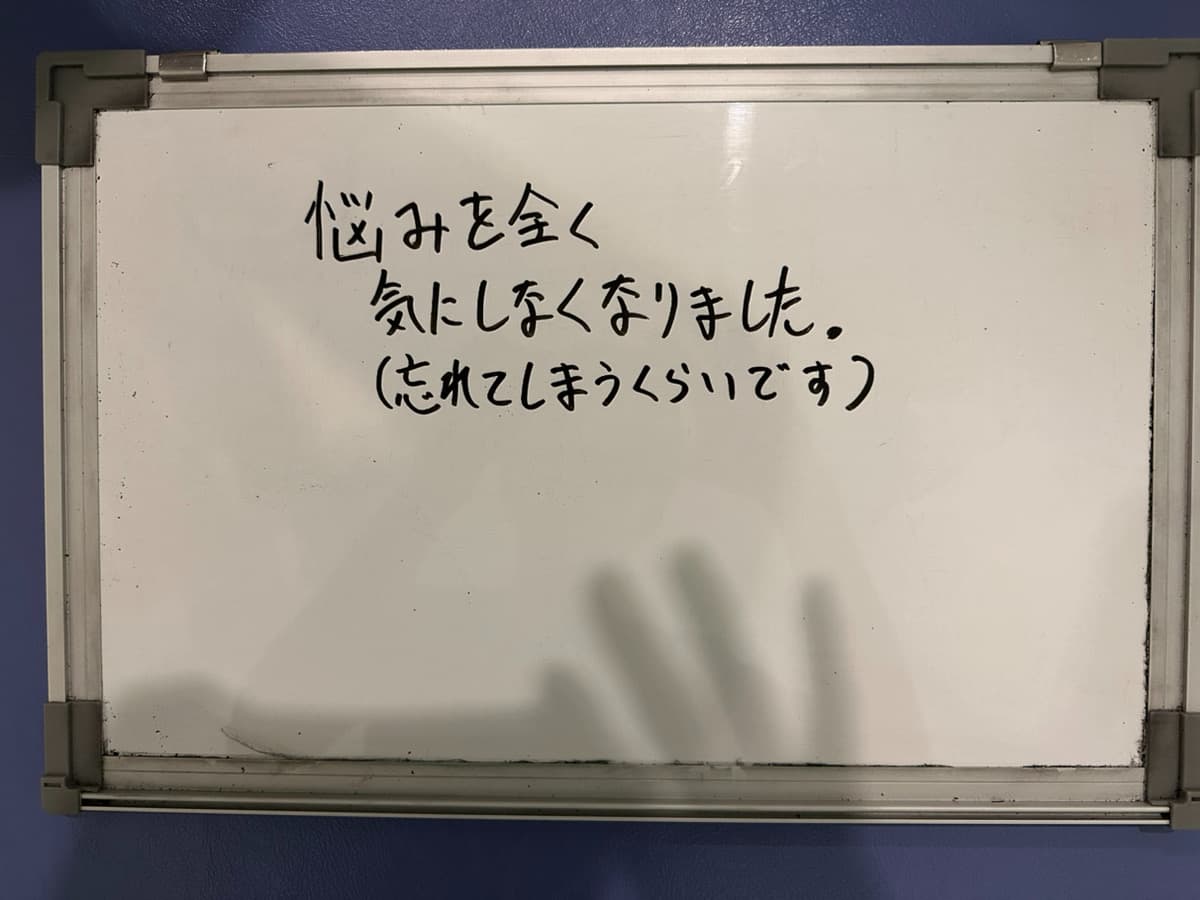 悩みを全く
気にしなくなりました.
(忘れてしまうくらいです)